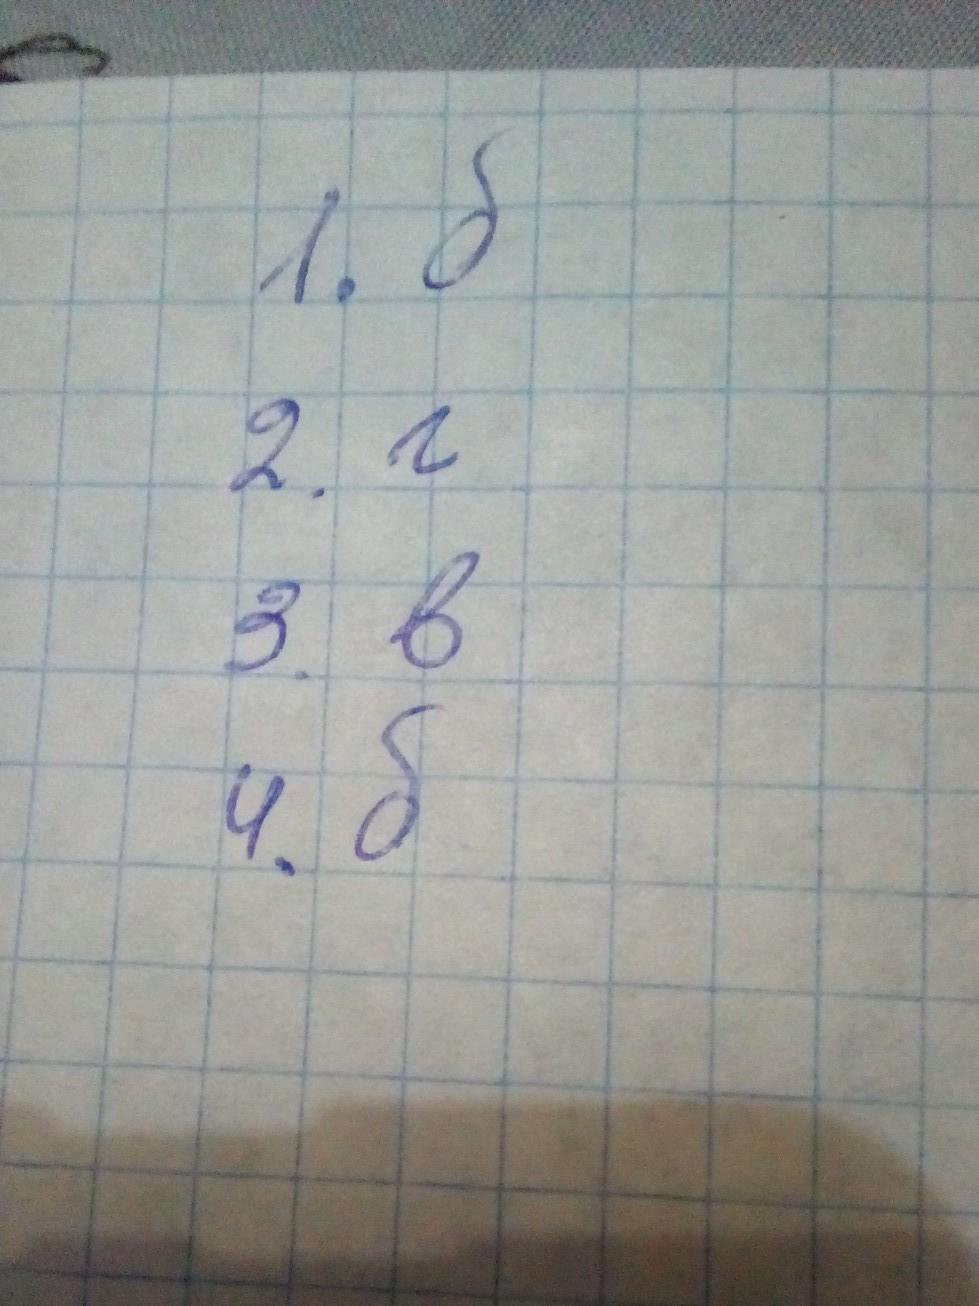 1. б
2. г
3. в
4. б